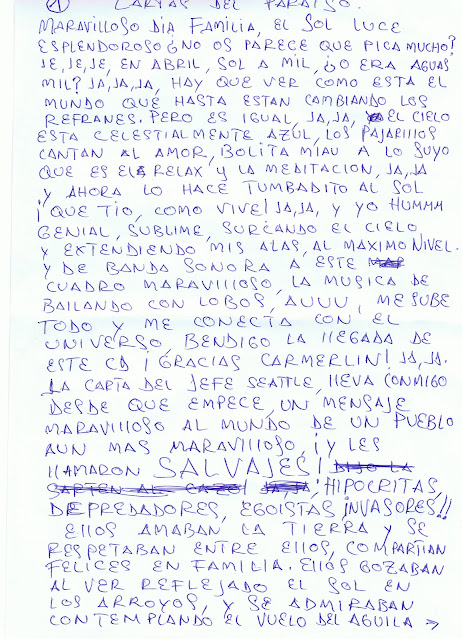 1 CARTAS DEL PARAISO.
MARAVILLOSO DIA FAMILIA, EL SOL LUCE
ESPLENDOROSO ¿NO OS PARECE QUE PICA MUCHO?
JE, JE, JE, EN ABRIL, SOL A MIL, ¿O ERA AGUAS
MIL? JA, JA, JA, HAY QUE VER COMO ESTA EL
MUNDO QUE HASTA ESTAN CAMBIANDO LOS
REFRANES. PERO ES IGUAL, JA, JA, EL CIELO
ESTA CELESTIALMENTE AZUL, LOS PAJARIllOS
CANTAN AL AMOR, BOLITA MIAU A LO SUYO
QUE ES EL RELAX Y LA MEDITACION, JA, JA
Y AHORA LO HACE TUMBADITO AL SOL
¡QUE TIO, COMO VIVE! JA, JA, Y YO HUMMM
GENIAL, SUBLIME, SURCANDO EL CIELO
Y EXTENDIENDO MIS ALAS, AL MAXIMO NIVEL.
Y DE BANDA SONORA A ESTE
CUADRO MARAVIllOSO, LA MUSICA DE
BAILANDO CON LOBOS, AUUU, ME SUBE
TODO Y ME CONECTA CON EL
UNIVERSO, BENDIGO LA llEGADA DE
ESTE CD ¡GRACIAS CARMERLIN! JA, JA.
LA CARTA DEL JEFE SEATTLE, llEVA CONMIGO
DESDE QUE EMPECE, UN MENSAJE
MARAVIllOSO AL MUNDO DE UN PUEBLO
AUN MAS MARAVIllOSO, ¡Y LES
llAMARON SALVAJES! DIJO LA
SARTEN AL CAZO! JA, JA, ¡HIPOCRITAS,
DEPREDADORES, EGOISTAS INVASORES!!
EllOS AMABAN LA TIERRA Y SE
RESPETABAN ENTRE EllOS, COMPARTIAN
FELICES EN FAMILIA. EllOS GOZABAN
AL VER REFLEJADO EL SOL EN
LOS ARROYOS, Y SE ADMIRABAN
CONTEMPLANDO EL VUELO DEL AGUILA →